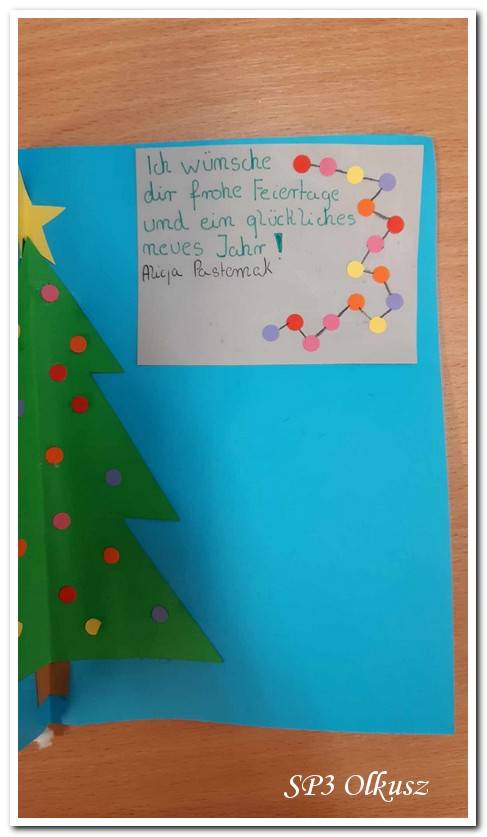 Ich wünsche
dir frohe Feiertage
und ein glückliches
neues Jahr!
Alicja Pasternak
SP3 Olkusz